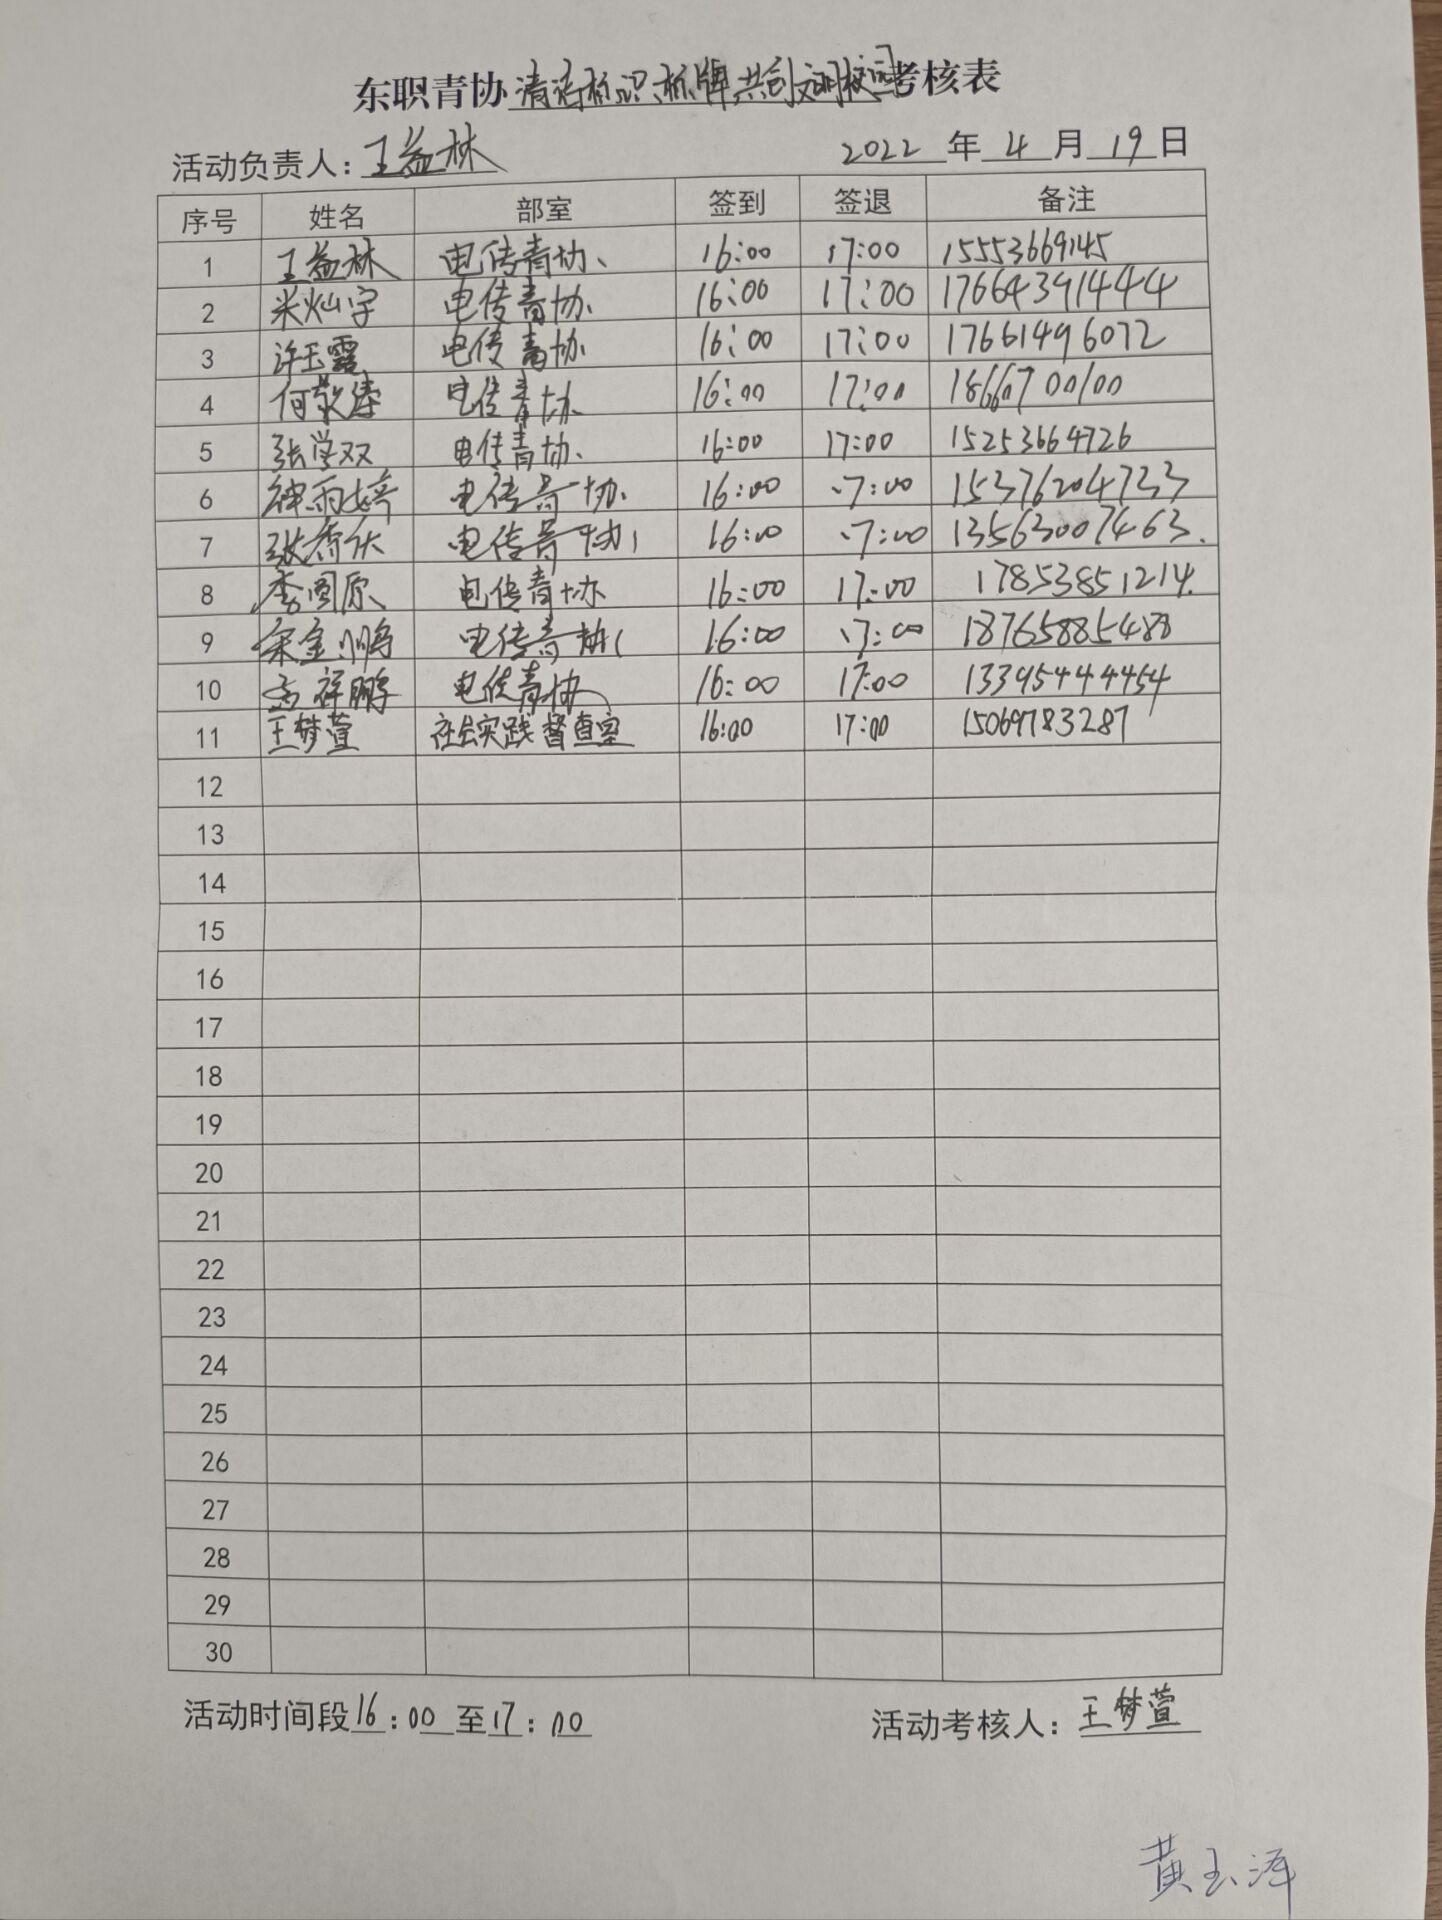 东职青协清洁标识标牌,共创文明校园考核表
活动负责人：王益林 2022年4月19日
序号 姓名 部室 签到 签退 备注
1 王益林 电传青协、 16:00 17:00 15553669145
2 米灿宇 电传青协. 16:00 17:00 17664391444
3 许玉露 电传青协. 16:00 17:00 17661496072
4 何敬涛 电传青协. 16:00 17:00 18660700100
5 张学双 电传青协. 16:00 17:00 15253664726
6 神雨婷 电传青协. 16:00 17:00 15376204733
7 张 电传青协 16:00 17:00 13563007463.
8 李 原 电传青协 16:00 17:00 17853851214.
9 宋金鹏 电传青协 16:00 17:00 18765885488
10 祥鹏 电传青协 16:00 17:00 13395444454
11 王梦萱 社会实践督查室 16:00 17:00 15069783287
12
13
14
15
16
17
18
19
20
21
22
23
24
25
26
27
28
29
30
活动时间段16:00至17:00 活动考核人：王梦萱
黄玉泽